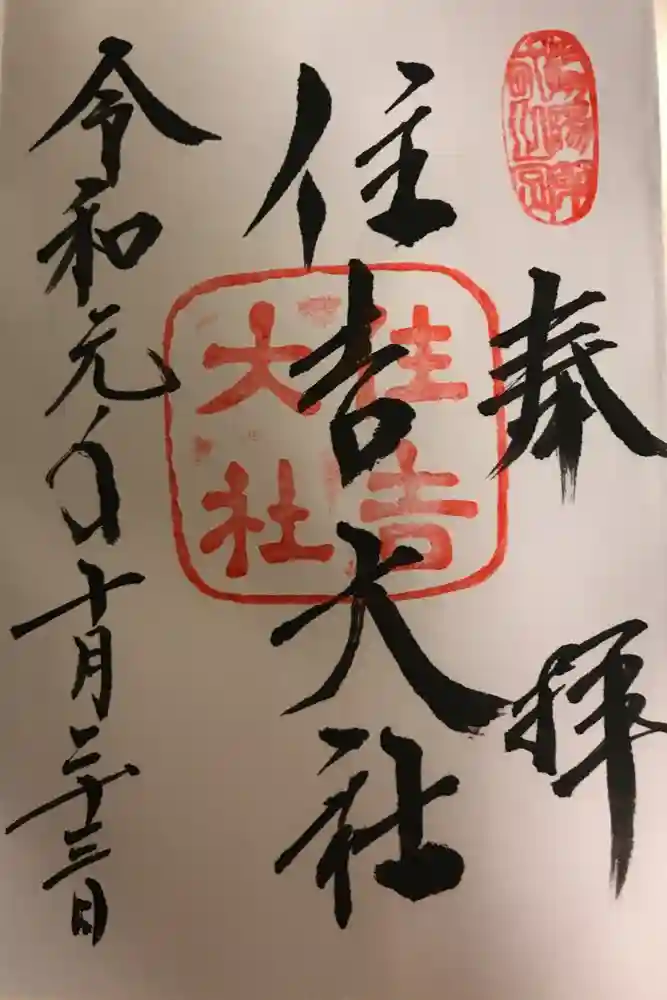 奉拝
住吉大社
令和元年十月二十三日
住吉
大社